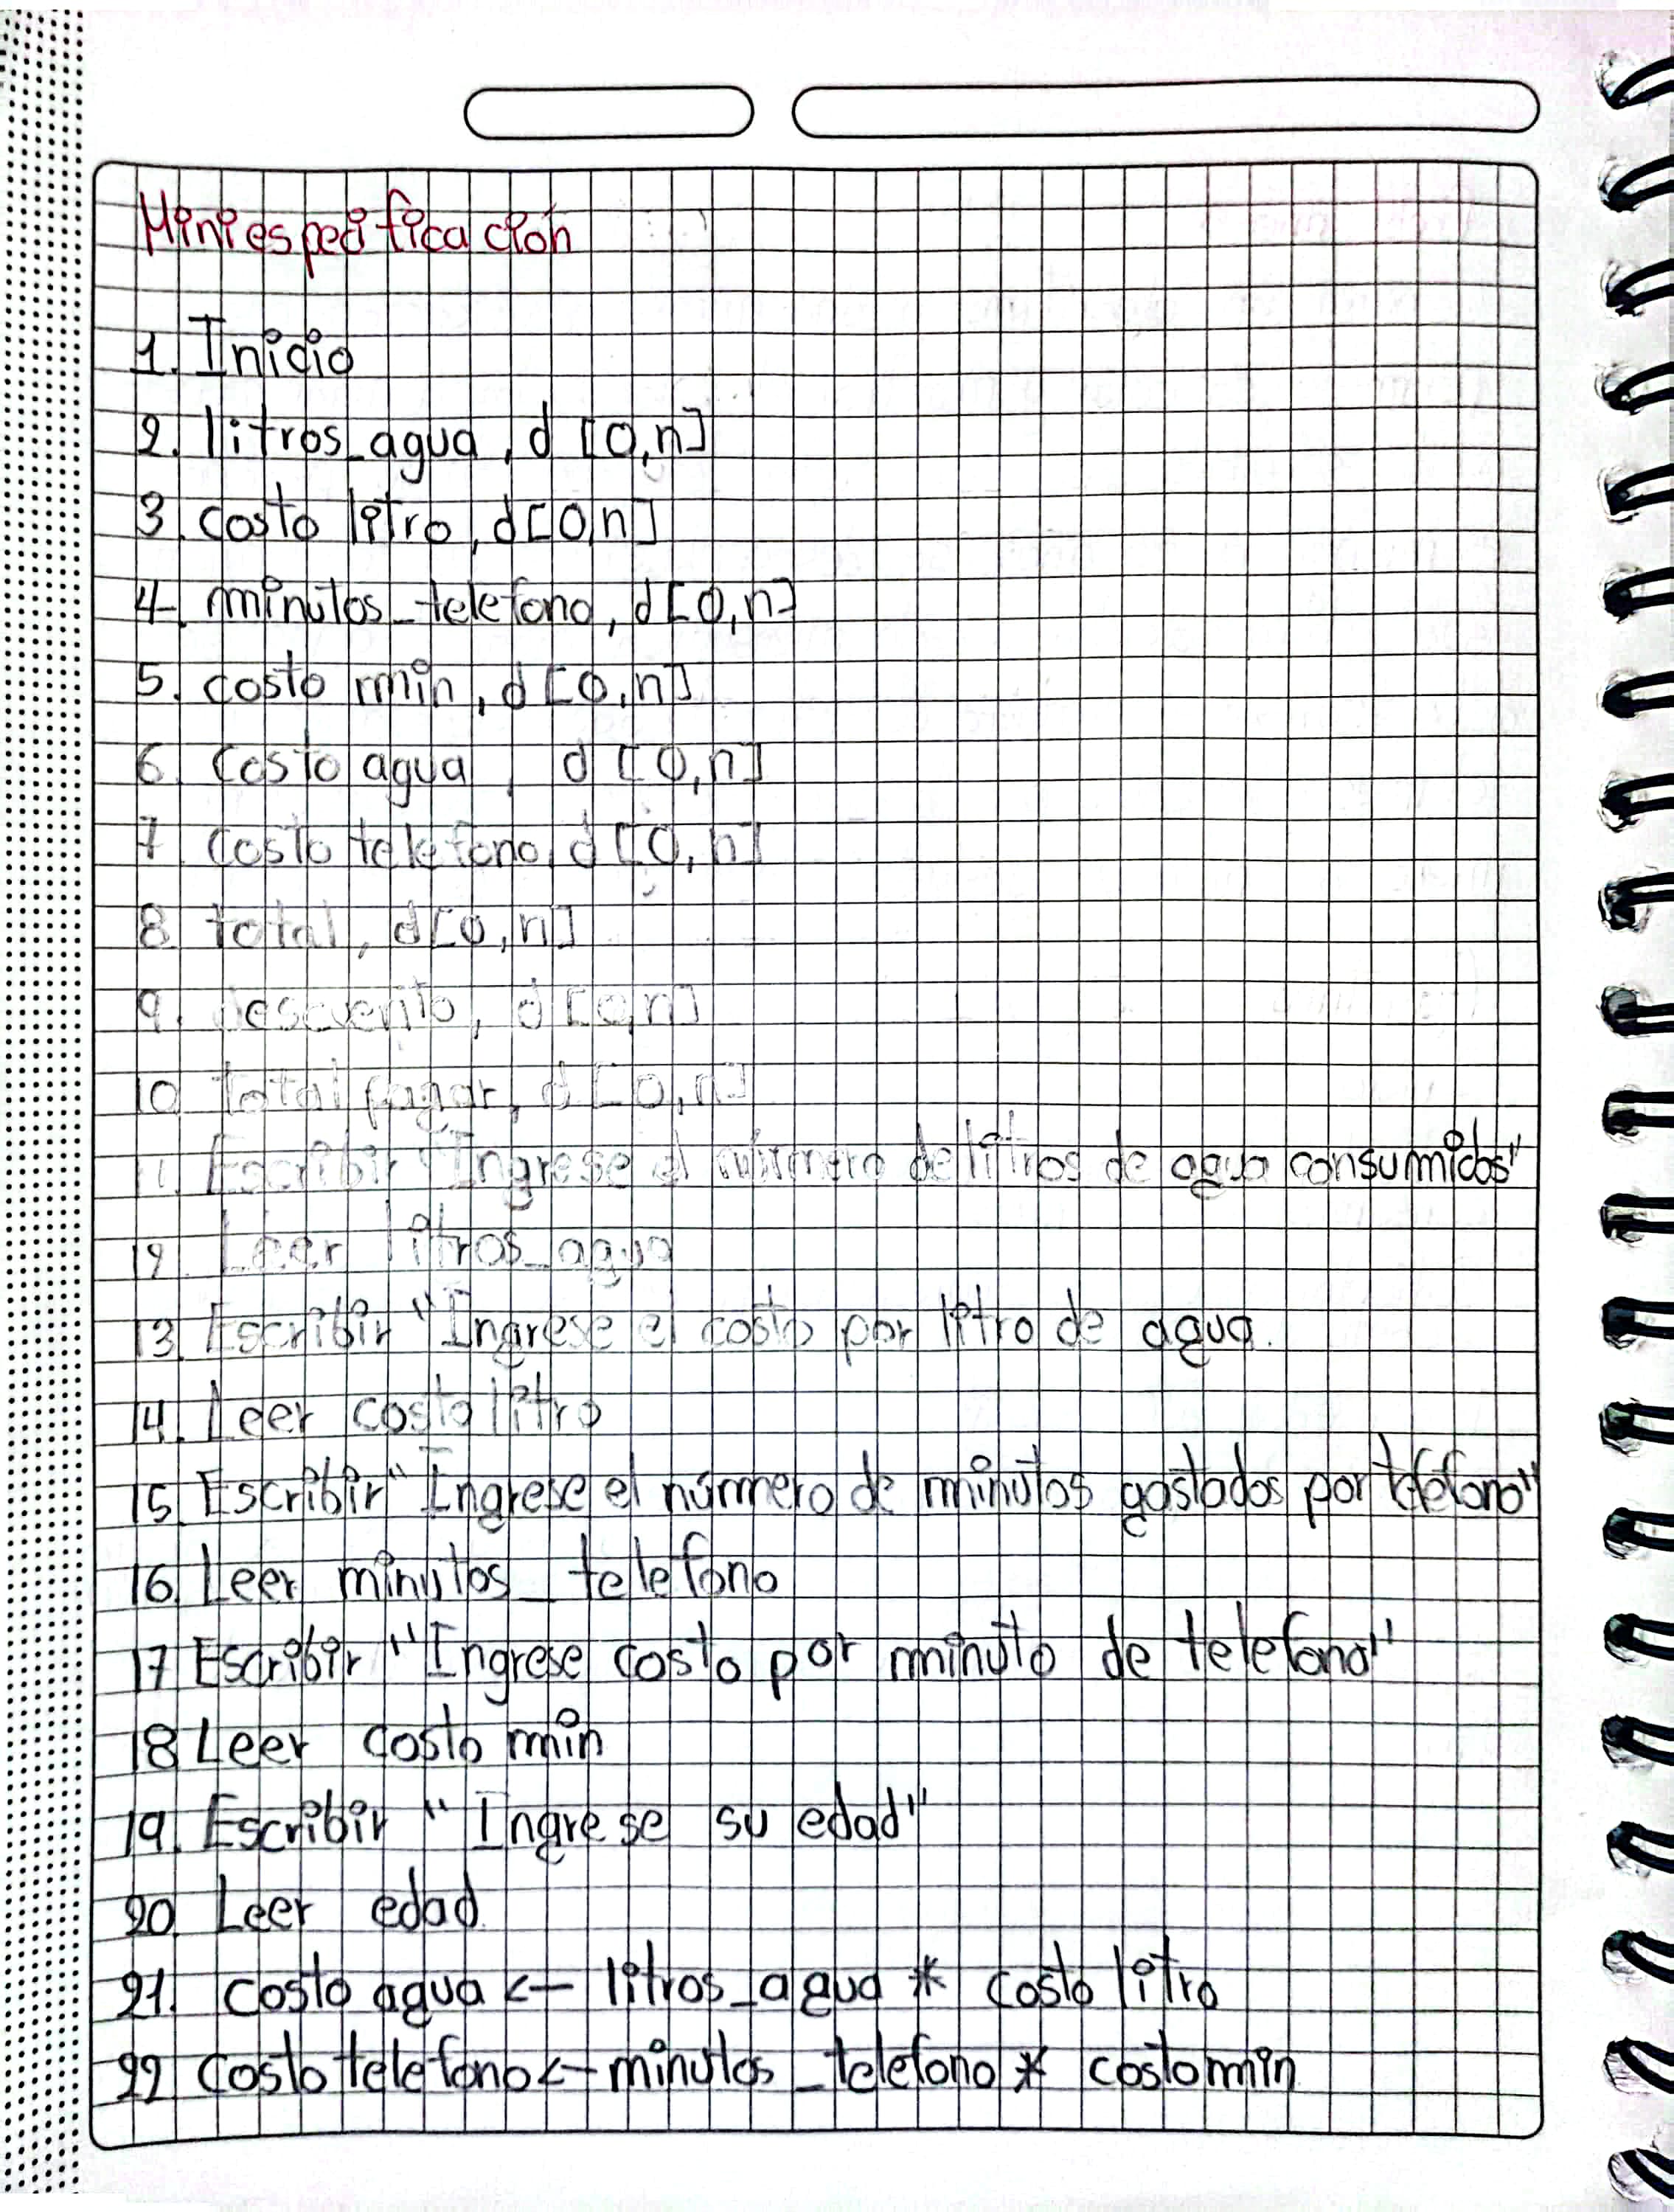 Miniespecificación
1. Inicio
2. litros_agua, d [0,n]
3. costo litro, d[0,n]
4. minutos_telefono, d[0,n]
5. costo min, d[0,n]
6. costo agua, d [0,n]
7. costo telefono, d [0,n]
8. total, d[0,n]
9. descuento, d[0,n]
10. total pagar, d [0,n]
11. Escribir "Ingrese el número de litros de agua consumidos"
12. Leer litros_agua
13. Escribir "Ingrese el costo por litro de agua.
14. Leer costo litro
15. Escribir "Ingrese el número de minutos gastados por teléfono"
16. Leer minutos_telefono
17 Escribir "Ingrese costo por minuto de telefono"
18 Leer costo min
19. Escribir "Ingrese su edad"
20. Leer edad
21. costo agua <- litros_agua * costo litro
22 costo telefono <- minutos_telefono * costo min